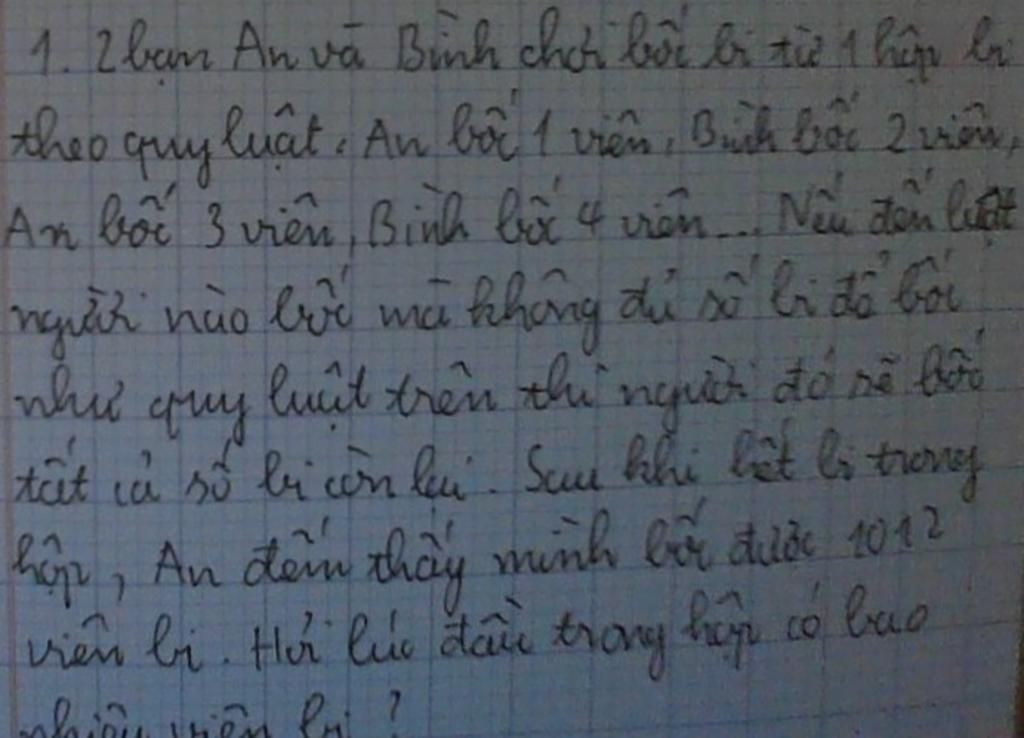 1. 2 bạn An và Bình chơi bốc bi từ 1 hộp bi
theo quy luật: An bốc 1 viên, Bình bốc 2 viên,
An bốc 3 viên, Bình bốc 4 viên... Nếu đến lượt
người nào bốc mà không đủ số bi để bốc
như quy luật trên thì người đó sẽ bốc
tất cả số bi còn lại. Sau khi hết bi trong
hộp, An đếm thấy mình bốc được 1012
viên bi. Hỏi lúc đầu trong hộp có bao
nhiêu viên bi?